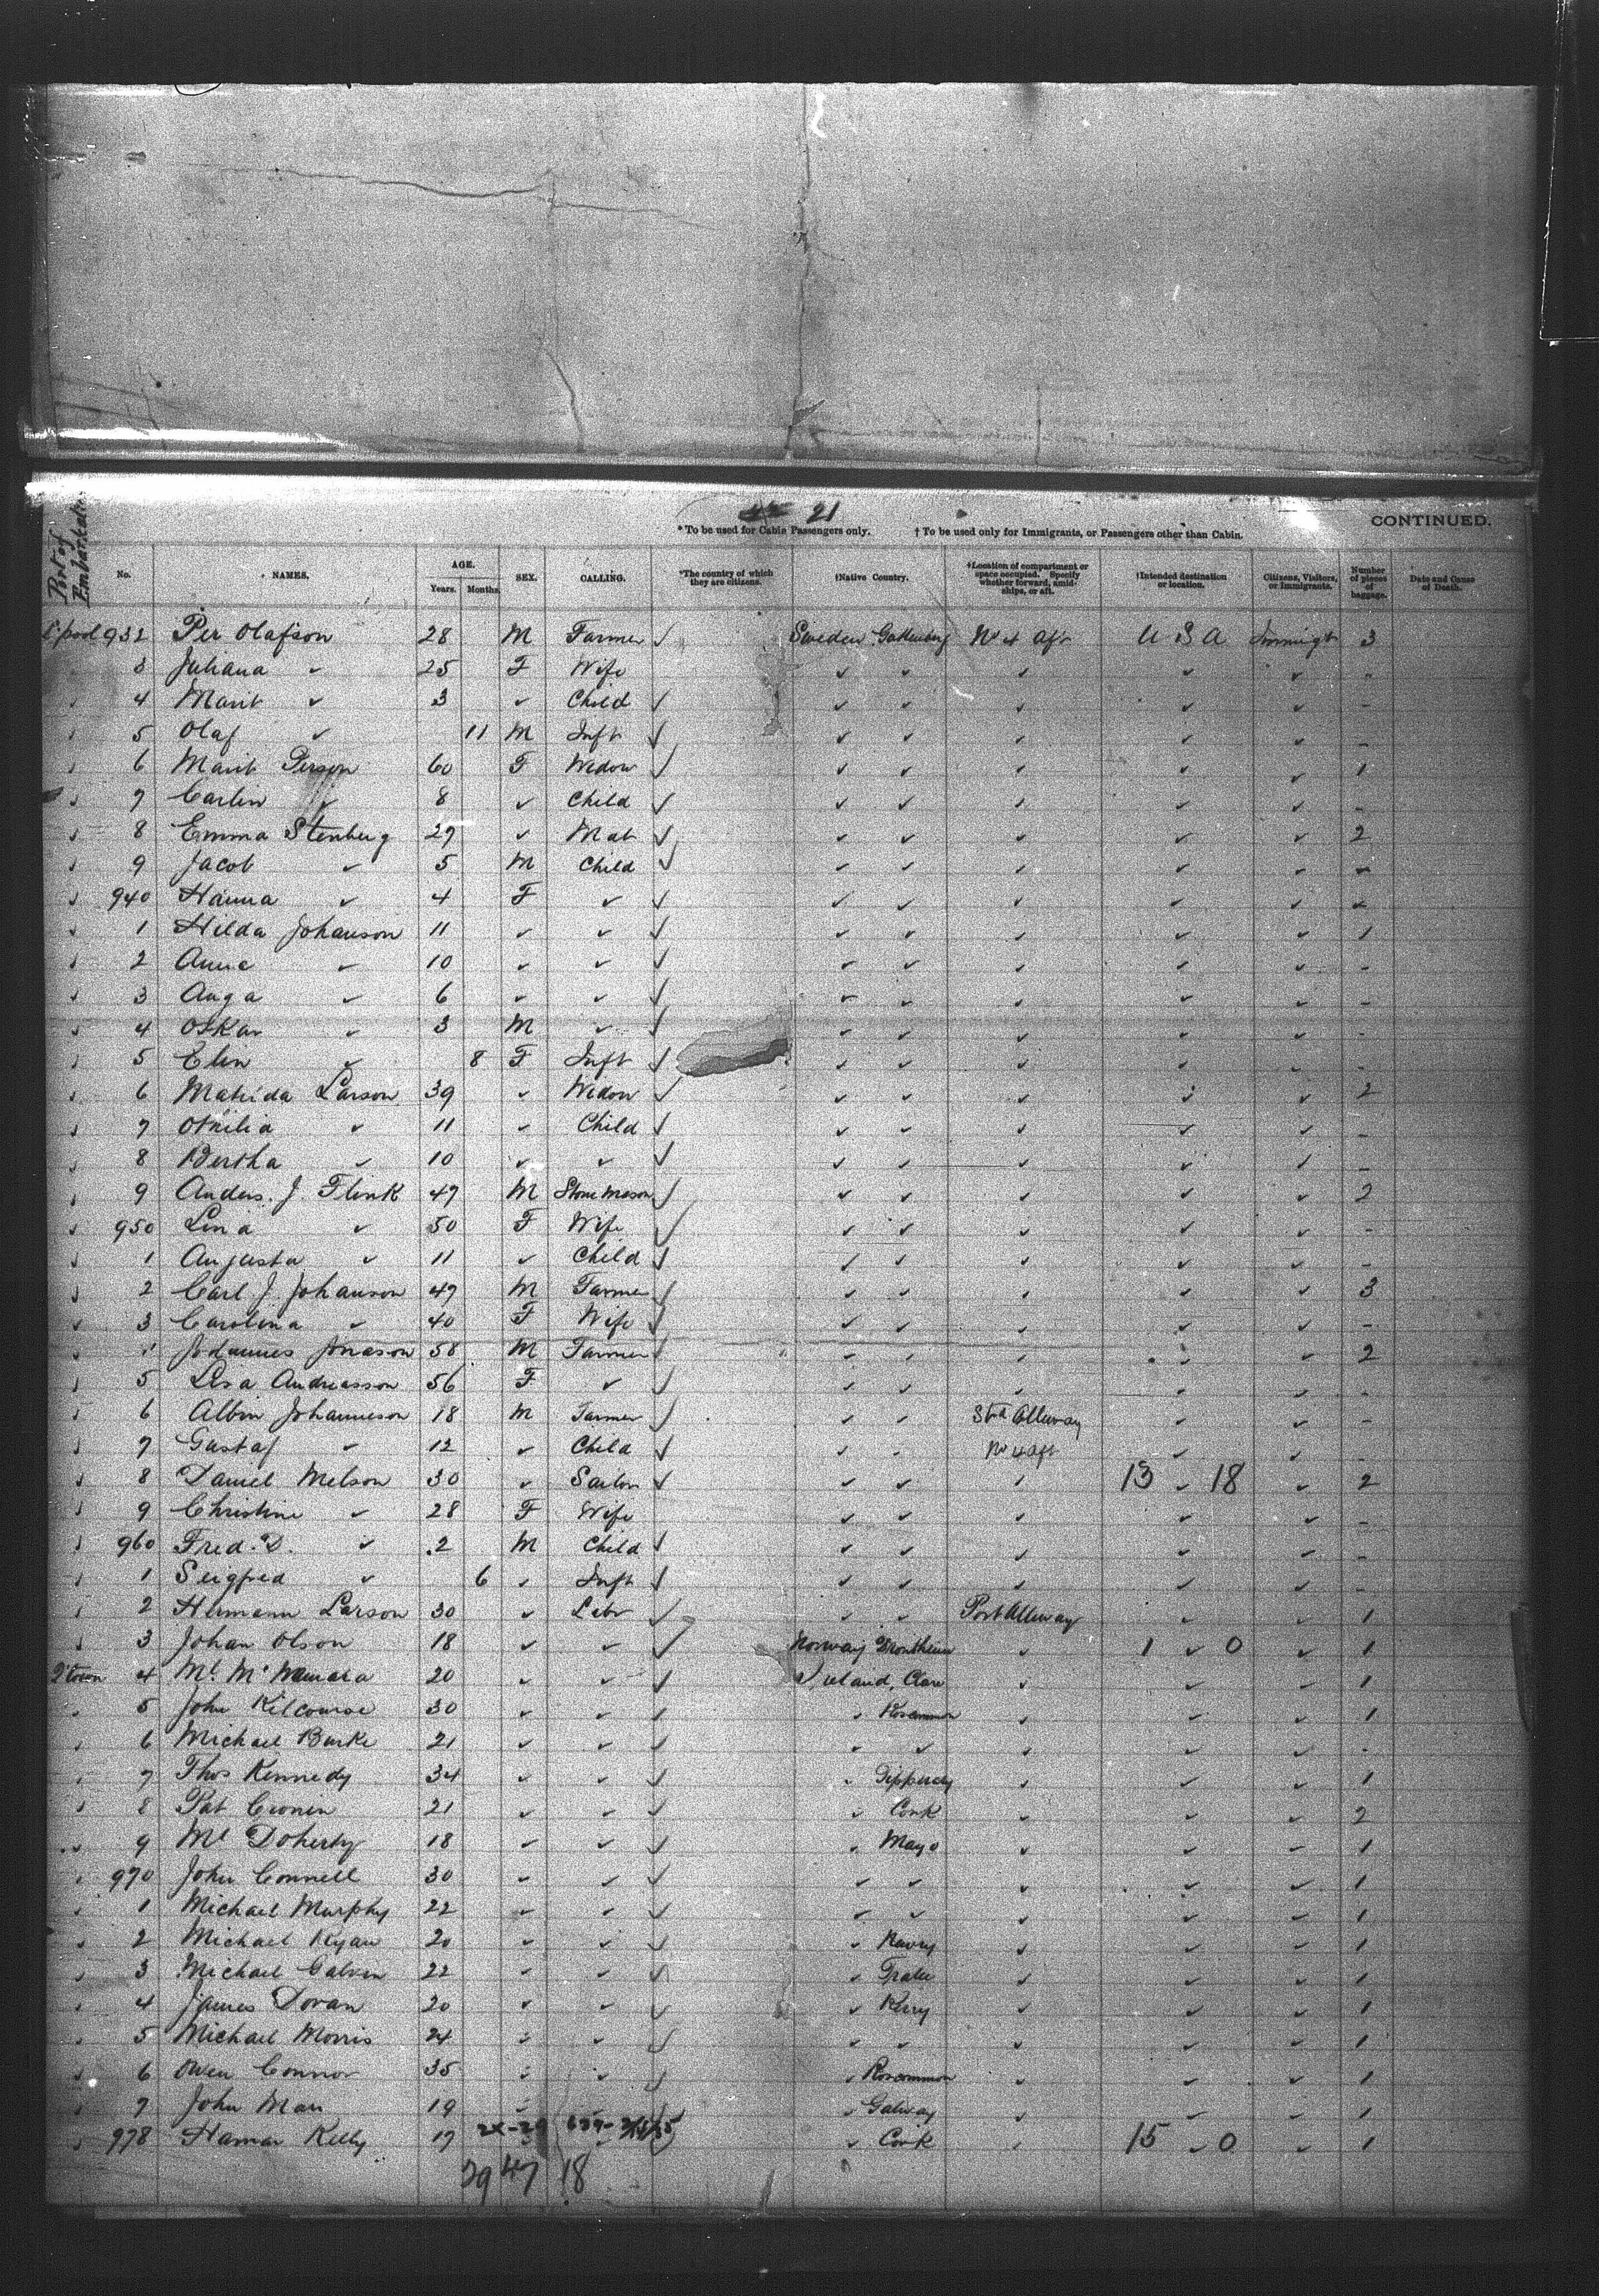 21
* To be used for Cabin Passengers only. † To be used only for Immigrants, or Passengers other than Cabin. CONTINUED.
Port of Embarkation No. NAMES. AGE. Years. Months. SEX. CALLING. *The country of which they are citizens. †Native Country. †Location of compartment or space occupied. Specify whether forward, amidships, or aft. †Intended destination or location. Citizens, Visitors, or Immigrants. Number of pieces of baggage. Date and Cause of Death.
L'pool 932 Per Olafson 28 M Farmer ✓ Sweden Gottenberg No 4 aft U S A Immigt 3
✓ 3 Juliana ✓ 25 F Wife ✓ ✓ ✓ ✓ ✓ "
✓ 4 Marit ✓ 3 ✓ Child ✓ ✓ ✓ ✓ ✓ ✓ -
✓ 5 Olaf ✓ 11 M Inft ✓ ✓ ✓ ✓ ✓ ✓ -
✓ 6 Marit Person 60 F Wedow ✓ ✓ ✓ ✓ ✓ ✓ 1
✓ 7 Carlin ✓ 8 ✓ Child ✓ ✓ ✓ ✓ ✓ ✓ -
✓ 8 Emma Stenberg 27 ✓ Mat ✓ ✓ ✓ ✓ ✓ ✓ 2
✓ 9 Jacob ✓ 5 M Child ✓ ✓ ✓ ✓ ✓ ✓ -
✓ 940 Hanna ✓ 4 F ✓ ✓ ✓ ✓ ✓ ✓ ✓ -
✓ 1 Hilda Johanson 11 ✓ ✓ ✓ ✓ ✓ ✓ ✓ ✓ 1
✓ 2 Anna ✓ 10 ✓ ✓ ✓ ✓ ✓ ✓ ✓ ✓ -
✓ 3 Anga ✓ 6 ✓ ✓ ✓ ✓ ✓ ✓ ✓ ✓ -
✓ 4 Oskar ✓ 3 M ✓ ✓ ✓ ✓ ✓ ✓ ✓ -
✓ 5 Elin ✓ 8 F Inft ✓ ✓ ✓ ✓ ✓ ✓ -
✓ 6 Matilda Larson 39 ✓ Wedow ✓ ✓ ✓ ✓ ✓ ✓ 2
✓ 7 Othilia ✓ 11 ✓ Child ✓ ✓ ✓ ✓ ✓ ✓ -
✓ 8 Bertha ✓ 10 ✓ ✓ ✓ ✓ ✓ ✓ ✓ ✓ -
✓ 9 Anders. J. Flink 47 M Stone Mason ✓ ✓ ✓ ✓ ✓ ✓ 2
✓ 950 Lina ✓ 50 F Wife ✓ ✓ ✓ ✓ ✓ ✓ -
✓ 1 Augusta ✓ 11 ✓ Child ✓ ✓ ✓ ✓ ✓ ✓ -
✓ 2 Carl J. Johanson 47 M Farmer ✓ ✓ ✓ ✓ ✓ ✓ 3
✓ 3 Carolina ✓ 40 F Wife ✓ ✓ ✓ ✓ ✓ ✓ -
✓ Johannes Jonason 58 M Farmer ✓ ✓ ✓ ✓ ✓ ✓ 2
✓ 5 Lisa Andreasson 56 F ✓ ✓ ✓ ✓ ✓ ✓ ✓ -
✓ 6 Albin Johanneson 18 M Farmer ✓ ✓ ✓ Stbd Alleway ✓ ✓ -
✓ 7 Gustaf ✓ 12 ✓ Child ✓ ✓ ✓ No 4 aft ✓ ✓ -
✓ 8 Daniel Melson 30 ✓ Sailor ✓ ✓ ✓ ✓ 13 ✓ 18 ✓ 2
✓ 9 Christine ✓ 28 F Wife ✓ ✓ ✓ ✓ ✓ -
✓ 960 Fred. D. ✓ 2 M Child ✓ ✓ ✓ ✓ ✓ ✓ -
✓ 1 Seigfred ✓ 6 ✓ Inft ✓ ✓ ✓ ✓ ✓ ✓ -
✓ 2 Hermann Larson 30 ✓ Labr ✓ ✓ ✓ Port Alleway ✓ ✓ 1
✓ 3 Johan Olson 18 ✓ ✓ ✓ Norway Drontheim ✓ 1 ✓ 0 ✓ 1
Q'town 4 Ml. McNamara 20 ✓ ✓ ✓ Ireland, Clare ✓ ✓ ✓ 1
✓ 5 John Kilcourse 30 ✓ ✓ ✓ ✓ Roscommon ✓ ✓ ✓ 1
✓ 6 Michael Burke 21 ✓ ✓ ✓ ✓ ✓ ✓ ✓ ✓ -
✓ 7 Thos Kennedy 34 ✓ ✓ ✓ ✓ Tipperary ✓ ✓ ✓ 1
✓ 8 Pat Cronin 21 ✓ ✓ ✓ ✓ Cork ✓ ✓ ✓ 2
✓ 9 Ml Doherty 18 ✓ ✓ ✓ ✓ Mayo ✓ ✓ ✓ 1
✓ 970 John Connell 30 ✓ ✓ ✓ ✓ ✓ ✓ ✓ ✓ 1
✓ 1 Michael Murphy 22 ✓ ✓ ✓ ✓ ✓ ✓ ✓ ✓ 1
✓ 2 Michael Ryan 20 ✓ ✓ ✓ ✓ ✓ ✓ ✓ 1
✓ 3 Michael Galvin 22 ✓ ✓ ✓ ✓ Tralee ✓ ✓ ✓ 1
✓ 4 James Doran 20 ✓ ✓ ✓ ✓ Kerry ✓ ✓ ✓ 1
✓ 5 Michael Morris 24 ✓ ✓ ✓ ✓ ✓ ✓ ✓ ✓ 1
✓ 6 Owen Connor 35 ✓ ✓ ✓ ✓ Roscommon ✓ ✓ ✓ 1
✓ 7 John Man 19 ✓ ✓ ✓ Galway ✓ ✓ ✓ 1
✓ 978 Hamar Kelly 17 ✓ ✓ Cork ✓ 15 ✓ 0 ✓ 1
29 47 18